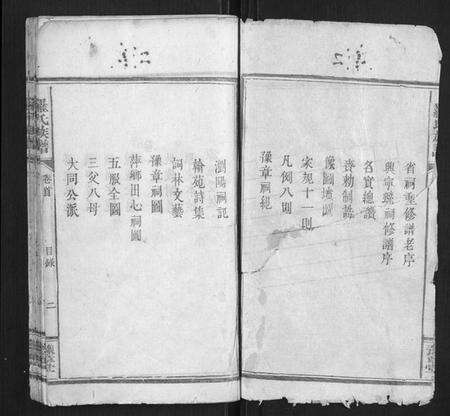 省祠重修譜老序
興寧琉祠修譜序
名賓總讚
賚勅制誥
像圖墳圖
家規十一則
凡例八則
豫章祠規
瀏陽祠記
翰苑詩集
詞林文藝
豫章祠圖
萍鄉田心祠圖
五服全圖
三父八母
大同公派
羅氏族譜
卷首
目錄
二
豫章堂